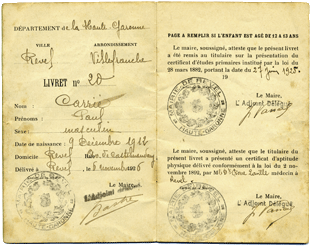 DÉPARTEMENT de la Haute Garonne
VILLE
ARRONDISSEMENT
Revel
Villefranche
LIVRET N° 20
Nom : Carrié
Prénoms : Paul
Sexe : masculin
Date de naissance : 9 Décembre 1912
Domicile Revel
Délivré à Revel
Le Maire,
PAGE A REMPLIR SI L'ENFANT EST AGÉ DE 12 A 13 ANS
Le maire, soussigné, atteste que le présent livret a
été remis au titulaire sur la présentation du
certificat d'études primaires institué par la loi du
28 mars 1882, portant la date du 27 juin 1925.
19
Le Maire,
L'Adjoint Délégué
MAIRIE DE REVEL
HAUTE-GARONNE
Le maire, soussigné, atteste que le titulaire du
présent livret a présenté un certificat d'aptitude
physique délivré conformément à la loi du 2
novembre 1892, par M
médecin à
Revel
Le Maire,
L'Adjoint Délégué